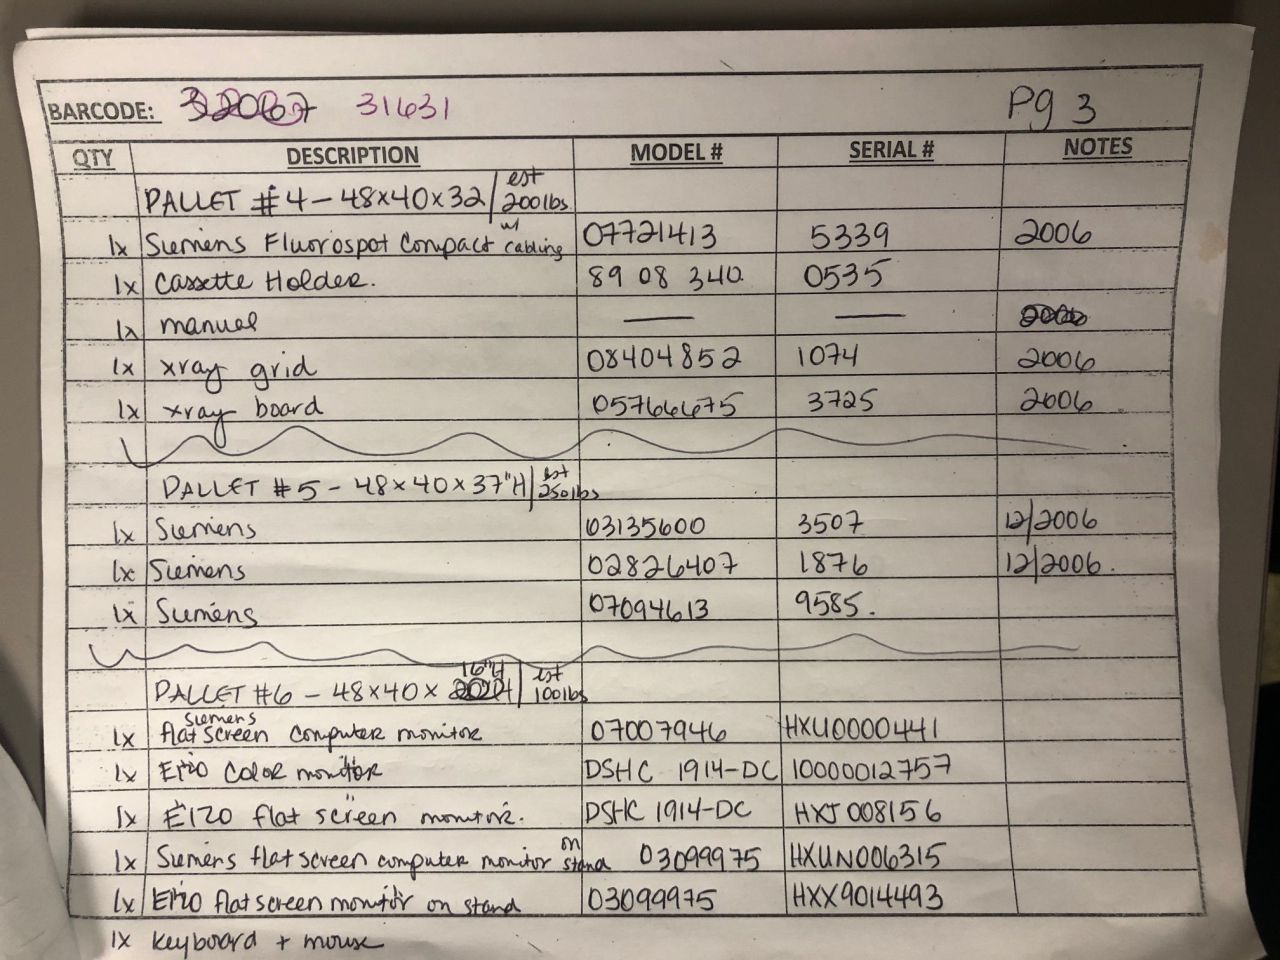 BARCODE: 32067 31631 Pg 3
QTY DESCRIPTION MODEL # SERIAL # NOTES
PALLET #4 - 48x40x32 | est 200lbs
1x Siemens Fluorospot Compact w/ cabling 07721413 5339 2006
1x Cassette Holder. 89 08 340 0535
1x manual — —
1x xray grid 08404852 1074 2006
1x xray board 05766675 3725 2006
PALLET #5 - 48x40x37"H | est 250lbs
1x Siemens 03135600 3507 12/2006
1x Siemens 02826407 1876 12/2006.
1x Siemens 07094613 9585.
PALLET #6 - 48x40x 16"H | est 100lbs
1x Siemens flat screen computer monitor 07007946 HXU0000441
1x EIZO Color monitor DSHC 1914-DC 10000012757
1x EIZO flat screen monitor. DSHC 1914-DC HXJ008156
1x Siemens flat screen computer monitor on stand 03099975 HXUN006315
1x EIZO flat screen monitor on stand 03099975 HXX9014493
1x keyboard + mouse